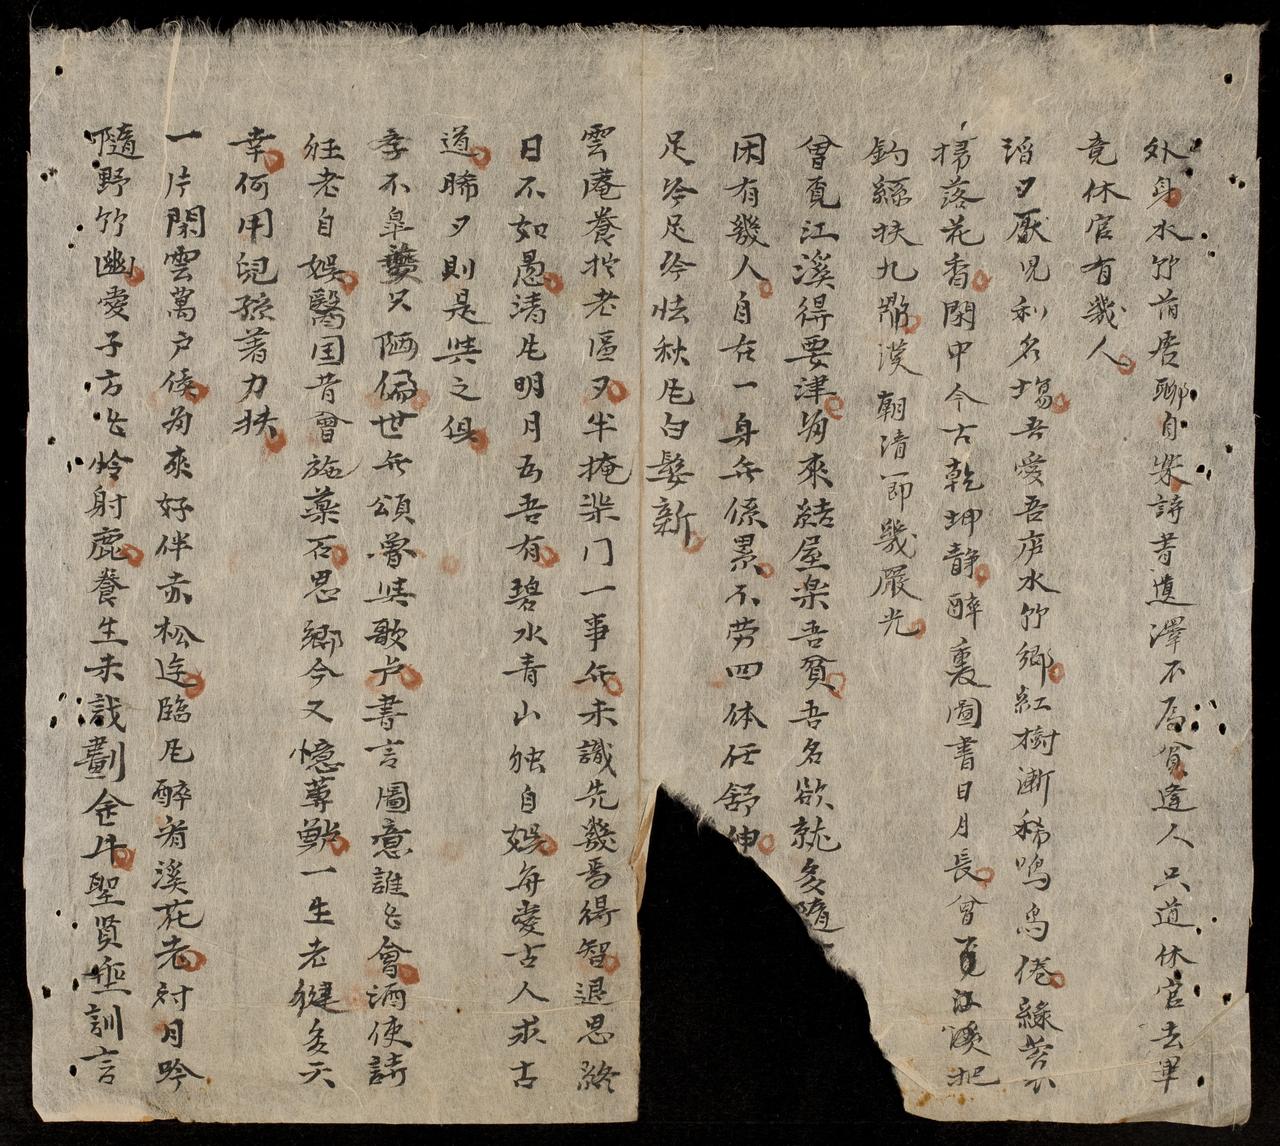 外身水竹前居聊自娛詩書遺澤不爲貧逢人只道休官去畢
竟休官有幾人
滔夕厭見利名場吾愛吾庐水竹鄉紅樹漸稀鳴鳥倦綠苔
掃落花香閑中今古乾坤静醉裏圖書日月長曾覓江溪把
釣絲扶九鼎漢朝清節幾嚴光
曾覓江溪得要津爲來結屋楽吾貧吾名欲就多隨
困有幾人自在一身无係累不劳四体任舒伸
足今足今怯秋風白髮新
雲庵養拙老區夕半掩柴门一事无未識先幾焉得智退思終
日不如愚清風明月吾吾有碧水青山独自娯每愛古人求古
道晞夕則是與之俱
季不皐夔只陋偏世无頌魯與歌卢書言圖意誰占會酒使詩
狂老自娯醫国昔曾施薬石思鄉今又憶蓴鱸一生老健多天
幸何用兒孫著力扶
一片閑雲萬户侯爲來好伴赤松逰臨風醉着溪花老对月吟
隨野竹幽愛子方占怜射鹿養生未戡劃金斗聖賢垂訓言